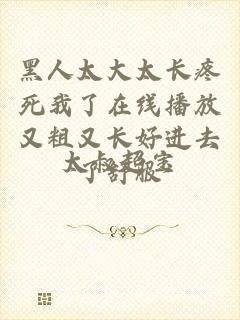 黑人太大太长疼
死我了在线播放
又粗又长好进去
了舒服
太叔 宝